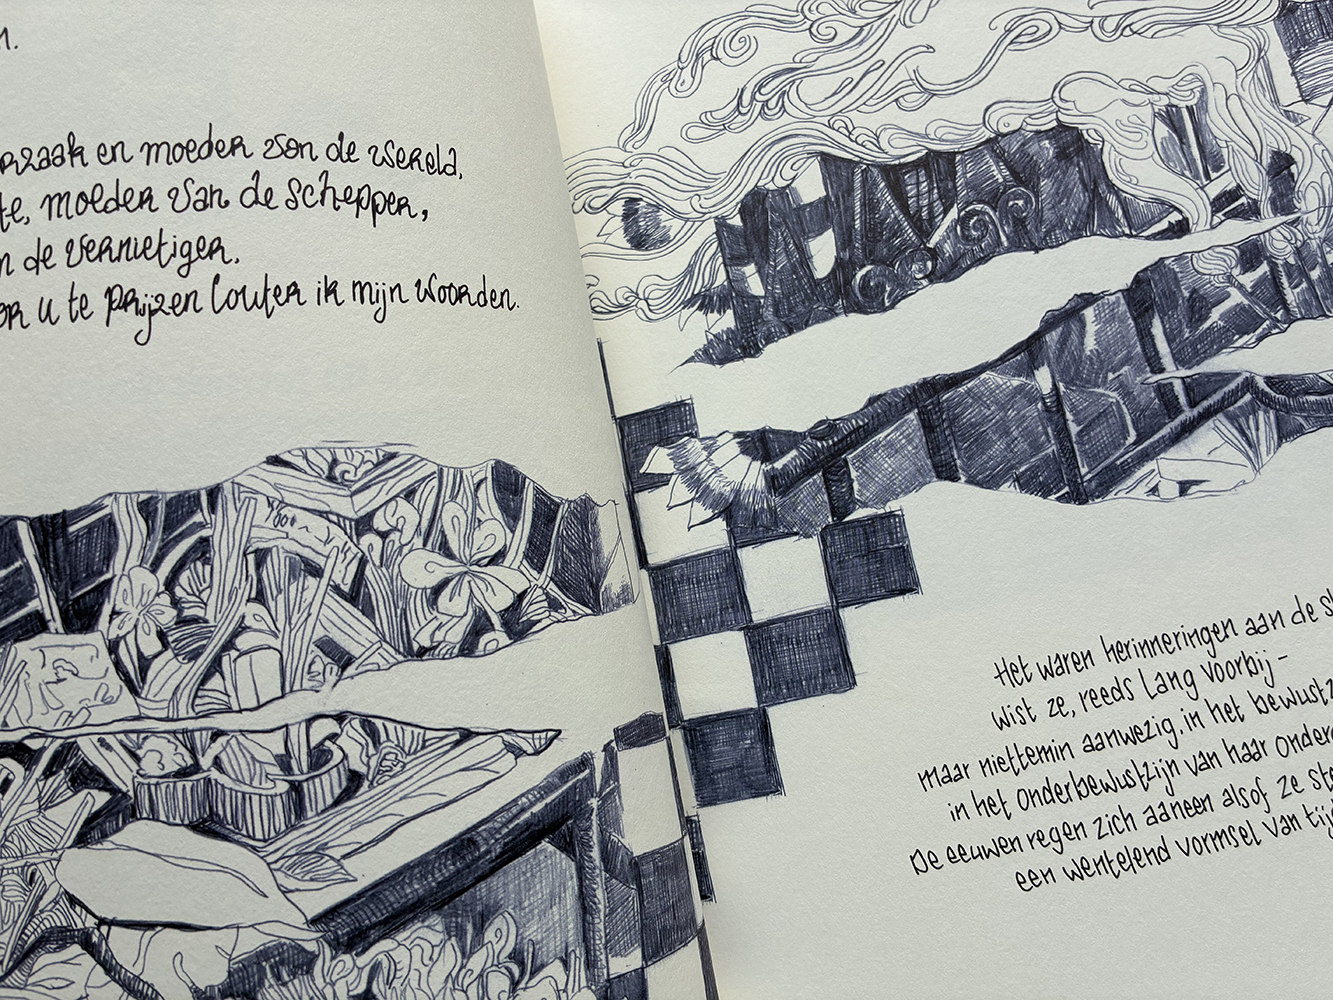 en moeder van de wereld,
moeder van de schepper,
de vernietiger.
u te prijzen louter ik mijn woorden.
Het waren herinneringen aan de
wist ze, reeds lang voorbij -
maar niettemin aanwezig, in het
in het onderbewustzijn van haar
De eeuwen regen zich aaneen alsof ze
een wentelend vormsel van